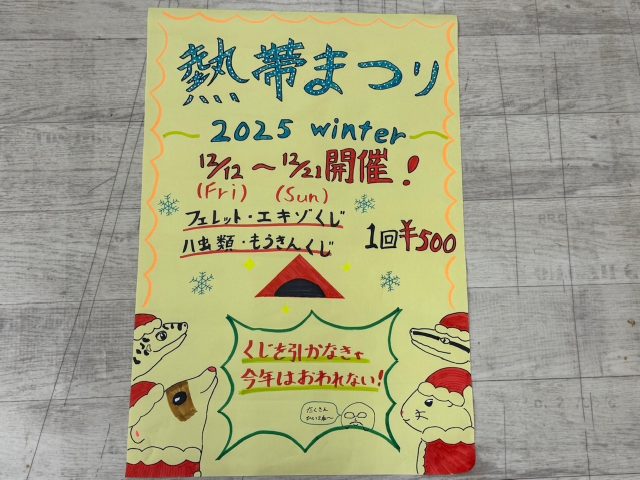 熱帯まつり
2025 winter
12/12 ~ 12/21 開催!
(Fri) (Sun)
フェレット・エキゾくじ
ハ虫類・もうきんくじ
1回¥500
くじを引かなきゃ
今年はおわれない!
たくさん
ひいてね〜